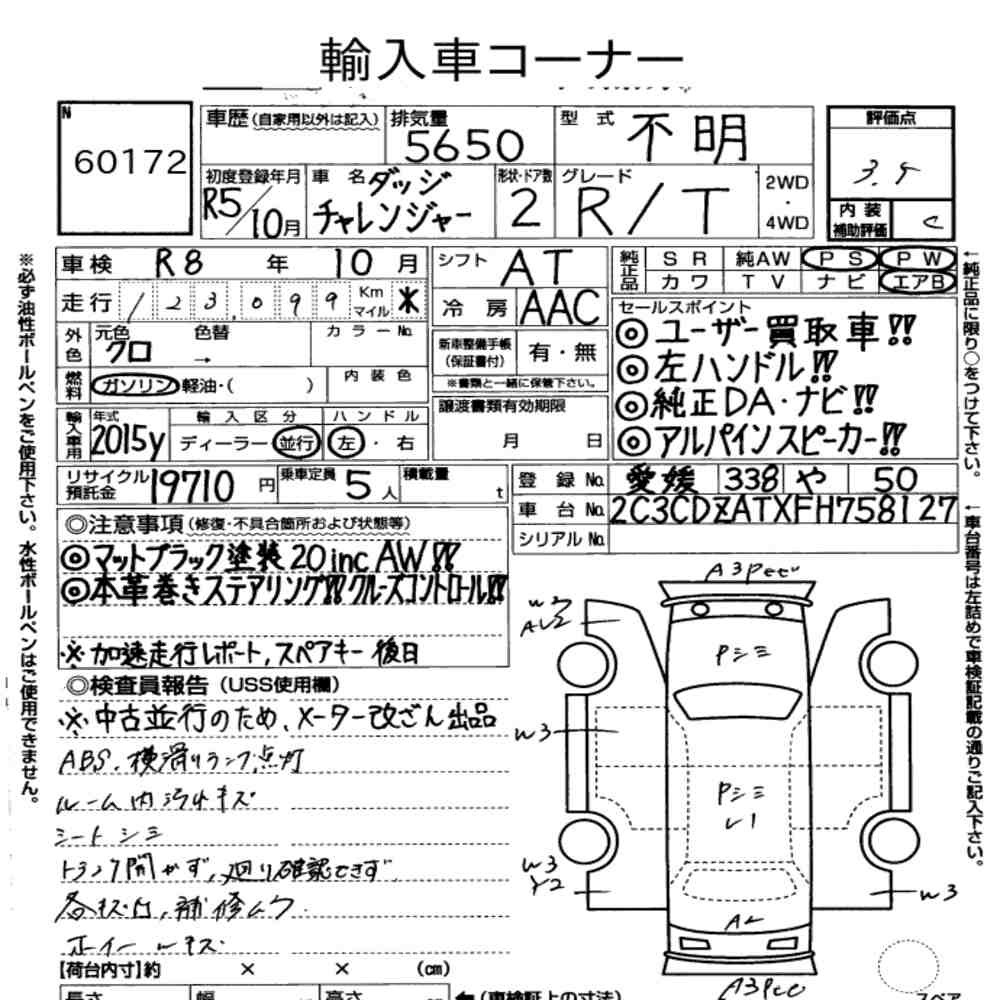 輸入車コーナー
N
60172
車歴(自家用以外は記入)
排気量
5650
型式
不明
評価点
3.5
内装
補助評価
C
初度登録年月
R5/10月
車名
ダッジ
チャレンジャー
形状・ドア数
2
グレード
R/T
2WD
・
4WD
車検 R8 年 10 月
走行 123,099 Km マイル ※
外色
元色
クロ
色替
→
カラーNo.
燃料
ガソリン・軽油・( )
内装色
輸入車用
年式
2015y
輸入区分
ディーラー・並行
ハンドル
左・右
シフト AT
冷房 AAC
新車整備手帳
(保証書付)
有・無
※書類と一緒に保管下さい。
譲渡書類有効期限
月 日
純正品
SR 純AW PS PW
カワ TV ナビ エアB
セールスポイント
◎ユーザー買取車!!
◎左ハンドル!!
◎純正DA・ナビ!!
◎アルパインスピーカー!!
リサイクル
預託金
19710 円
乗車定員
5人
積載量
t
登録No. 愛媛 338 や 50
車台No. 2C3CDZATXFH758127
シリアルNo.
◎注意事項(修復・不具合箇所および状態等)
◎マットブラック塗装20inc AW!!
◎本革巻きステアリング!!クルーズコントロール!!
※加速走行レポート,スペアキー後日
◎検査員報告(USS使用欄)
※中古並行のため、メーター改ざん出品
ABS.横滑りランプ点灯
ルーム内汚れキズ
シートシミ
トランク開かず,廻り確認できず
各キズ凹,補修ムラ
ホイールキズ
【荷台内寸】約 × × (cm)
長さ
幅
高さ
(車検証上の寸法)
※必ず油性ボールペンをご使用下さい。水性ボールペンはご使用できません。
←純正品に限り○をつけて下さい。
←車台番号は左詰めで車検証記載の通りご記入下さい。
W2
Pシミ
W3
Pシミ
W3
Y2
W3
スペア